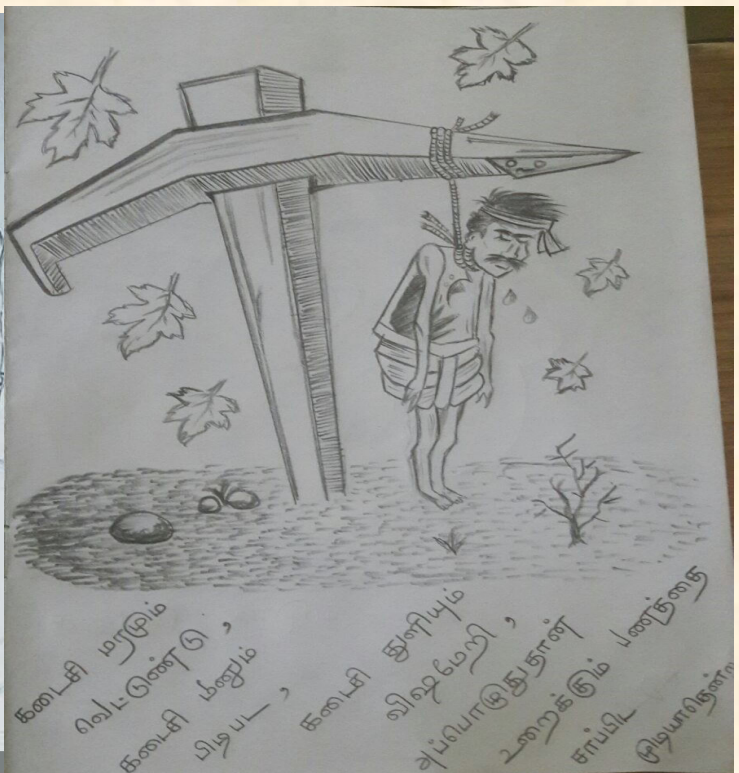 கடைசி மரமும்
வெட்டுண்டு,
கடைசி மீனும்
பிடிபட,
கடைசி துளியும்
விஷமேறி,
அப்பொழுதுதான்
உறைக்கும் பணத்தை
சாப்பிட
முடியாதென்